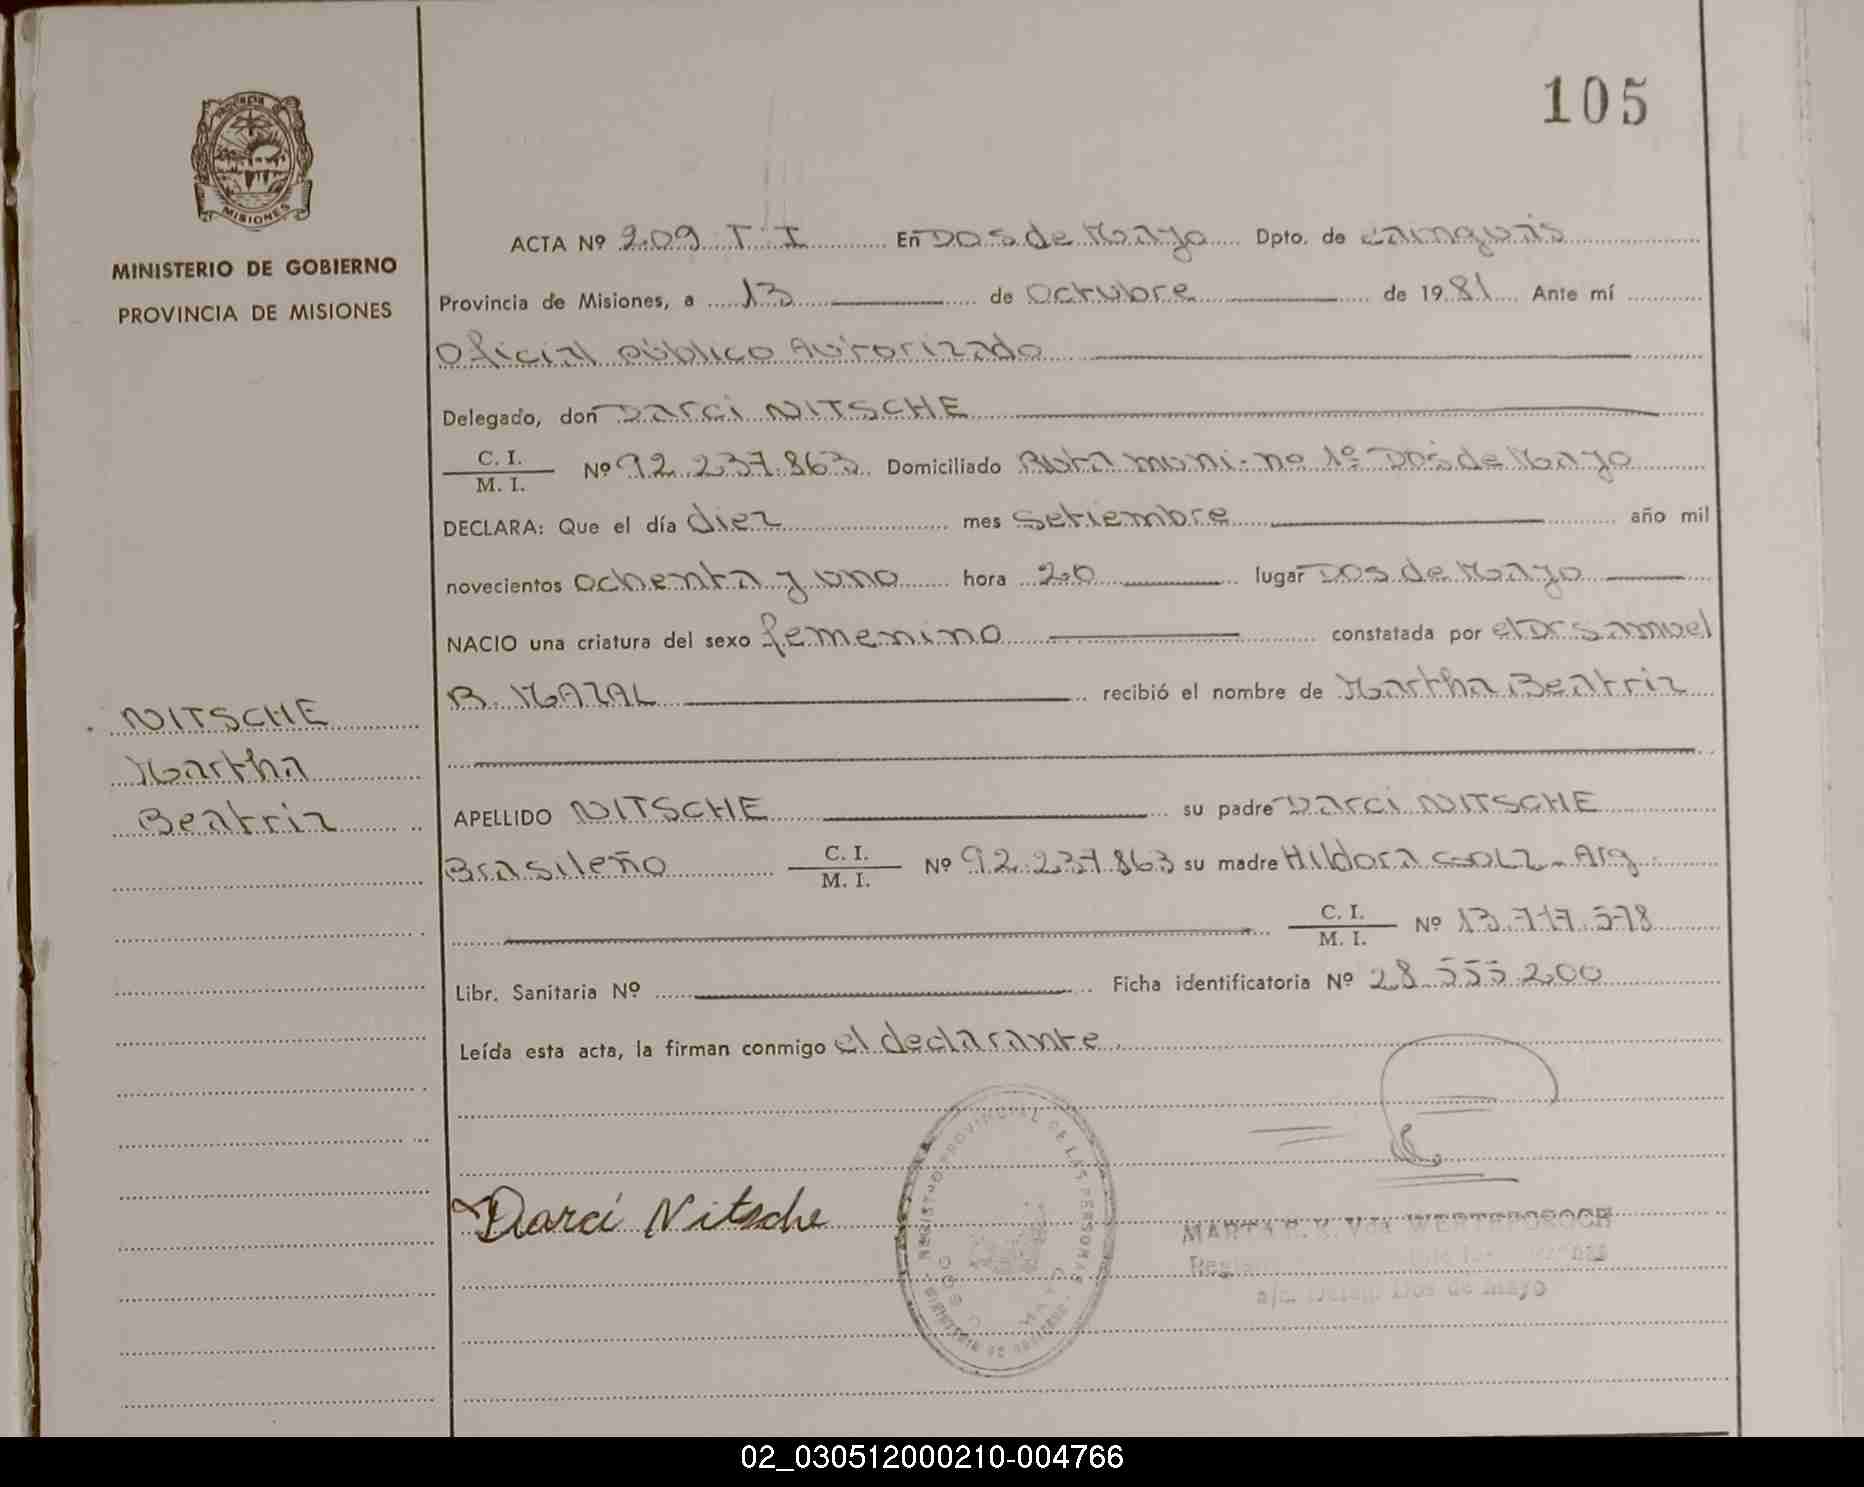 105
PROVINCIA
MISIONES
MINISTERIO DE GOBIERNO
PROVINCIA DE MISIONES
NITSCHE
Martha
Beatriz
ACTA Nº 209 T I En Dos de Mayo Dpto. de Cainguás
Provincia de Misiones, a 13 de Octubre de 1981 Ante mí
Oficial público Autorizado
Delegado, don Darci NITSCHE
C. I.
M. I. Nº 92.237.863 Domiciliado Ruta muni. no 1º Dos de Mayo
DECLARA: Que el día diez mes Setiembre año mil
novecientos ochenta y uno hora 20 lugar Dos de Mayo
NACIO una criatura del sexo femenino constatada por el Dr Samuel
B. MAZAL recibió el nombre de Martha Beatriz
APELLIDO NITSCHE su padre Darci NITSCHE
Brasileño C. I.
M. I. Nº 92.237.863 su madre Hildora GOLZ - Arg
C. I.
M. I. Nº 13.717.578
Libr. Sanitaria Nº Ficha identificatoria Nº 28.555.200
Leída esta acta, la firman conmigo el declarante
Darci Nitsche
REGISTRO PROVINCIAL DE LAS PERSONAS
MINISTERIO DE GOBIERNO
DOS DE MAYO
MARTA
Dos de Mayo
02_030512000210-004766